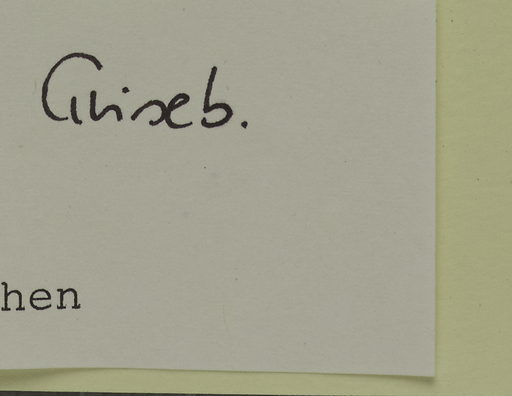 Griseb.
hen